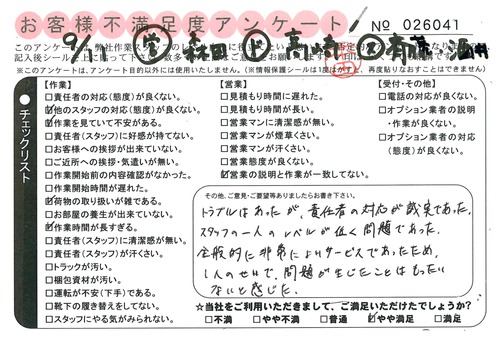 お客様不満足度アンケート
No 026041
9/11 営 森田 高崎
このアンケートは、弊社作業スタッフの
※このアンケートは、アンケート目的以外には使用いたしません。（※情報保護シールは1度はがすと、再度貼りなおすことはできません）
チェックリスト
【作業】
□責任者の対応（態度）が良くない。
☑他のスタッフの対応（態度）が良くない。
□作業を見ていて不安がある。
□責任者（スタッフ）に好感が持てない。
□お客様への挨拶が出来ていない。
□ご近所への挨拶・気遣いが無い。
□作業開始前の内容確認がなかった。
□作業開始時間が遅れた。
☑荷物の取り扱いが雑である。
□お部屋の養生が出来ていない。
☑作業時間が長すぎる。
□責任者（スタッフ）に清潔感が無い。
□責任者（スタッフ）が汗くさい。
□トラックが汚い。
□梱包資材が汚い。
□運転が不安（下手）である。
□靴下の履き替えをしてない。
□スタッフにやる気がみられない。
【営業】
□見積もり時間に遅れた。
□見積もり時間が長い。
□営業マンに清潔感が無い。
□営業マンが煙草くさい。
□営業マンが汗くさい。
□営業態度が良くない。
☑営業の説明と作業が一致してない。
【受付・その他】
□電話の対応が良くない。
□オプション業者の説明
・作業が良くない。
□オプション業者の対応
（態度）が良くない。
その他、ご意見・ご要望等ありましたらお書き下さい。
トラブルはあったが、責任者の対応が誠実であった。
スタッフの一人のレベルが低く問題であった。
全般的に非常によいサービスであったため、
1人のせいで、問題が生じたことはもったい
ないと感じた。
★当社をご利用いただきまして、ご満足いただけたでしょうか？
□不満 □やや不満 □普通 ☑やや満足 □満足